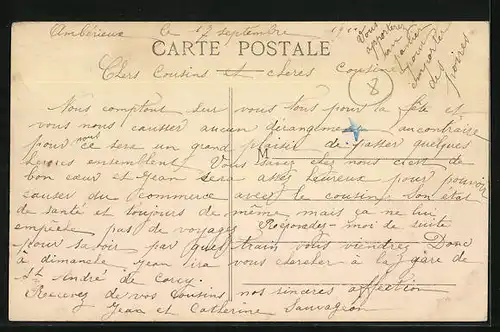 Ambérieux le 17 septembre 19
Vous
apporterez
un
panier
pour
emporter
des
poires
CARTE POSTALE
Chers Cousins et chères Cousines
8
Nous comptont sur vous tous pour la fête et
vous nous causser aucun dérangement au contraire
pour nous ce sera un grand plaisir de passer quelques
heures ensemblent. Vous savez chez nous c'est de
bon cœur et Jean sera assez heureux pour pouvoir
causer du commerce avec le cousin. Son état
de santé et toujours de même, mais ça ne lui
empêche pas de voyager. Réspondez-moi de suite
pour savoir par quel train vous viendrez. Donc
à dimanche. Jean ira vous chercher à la gare de
St André de Corcy.
Recevez de vos Cousins nos sincères affection
Jean et Catherine Sauvageon
M